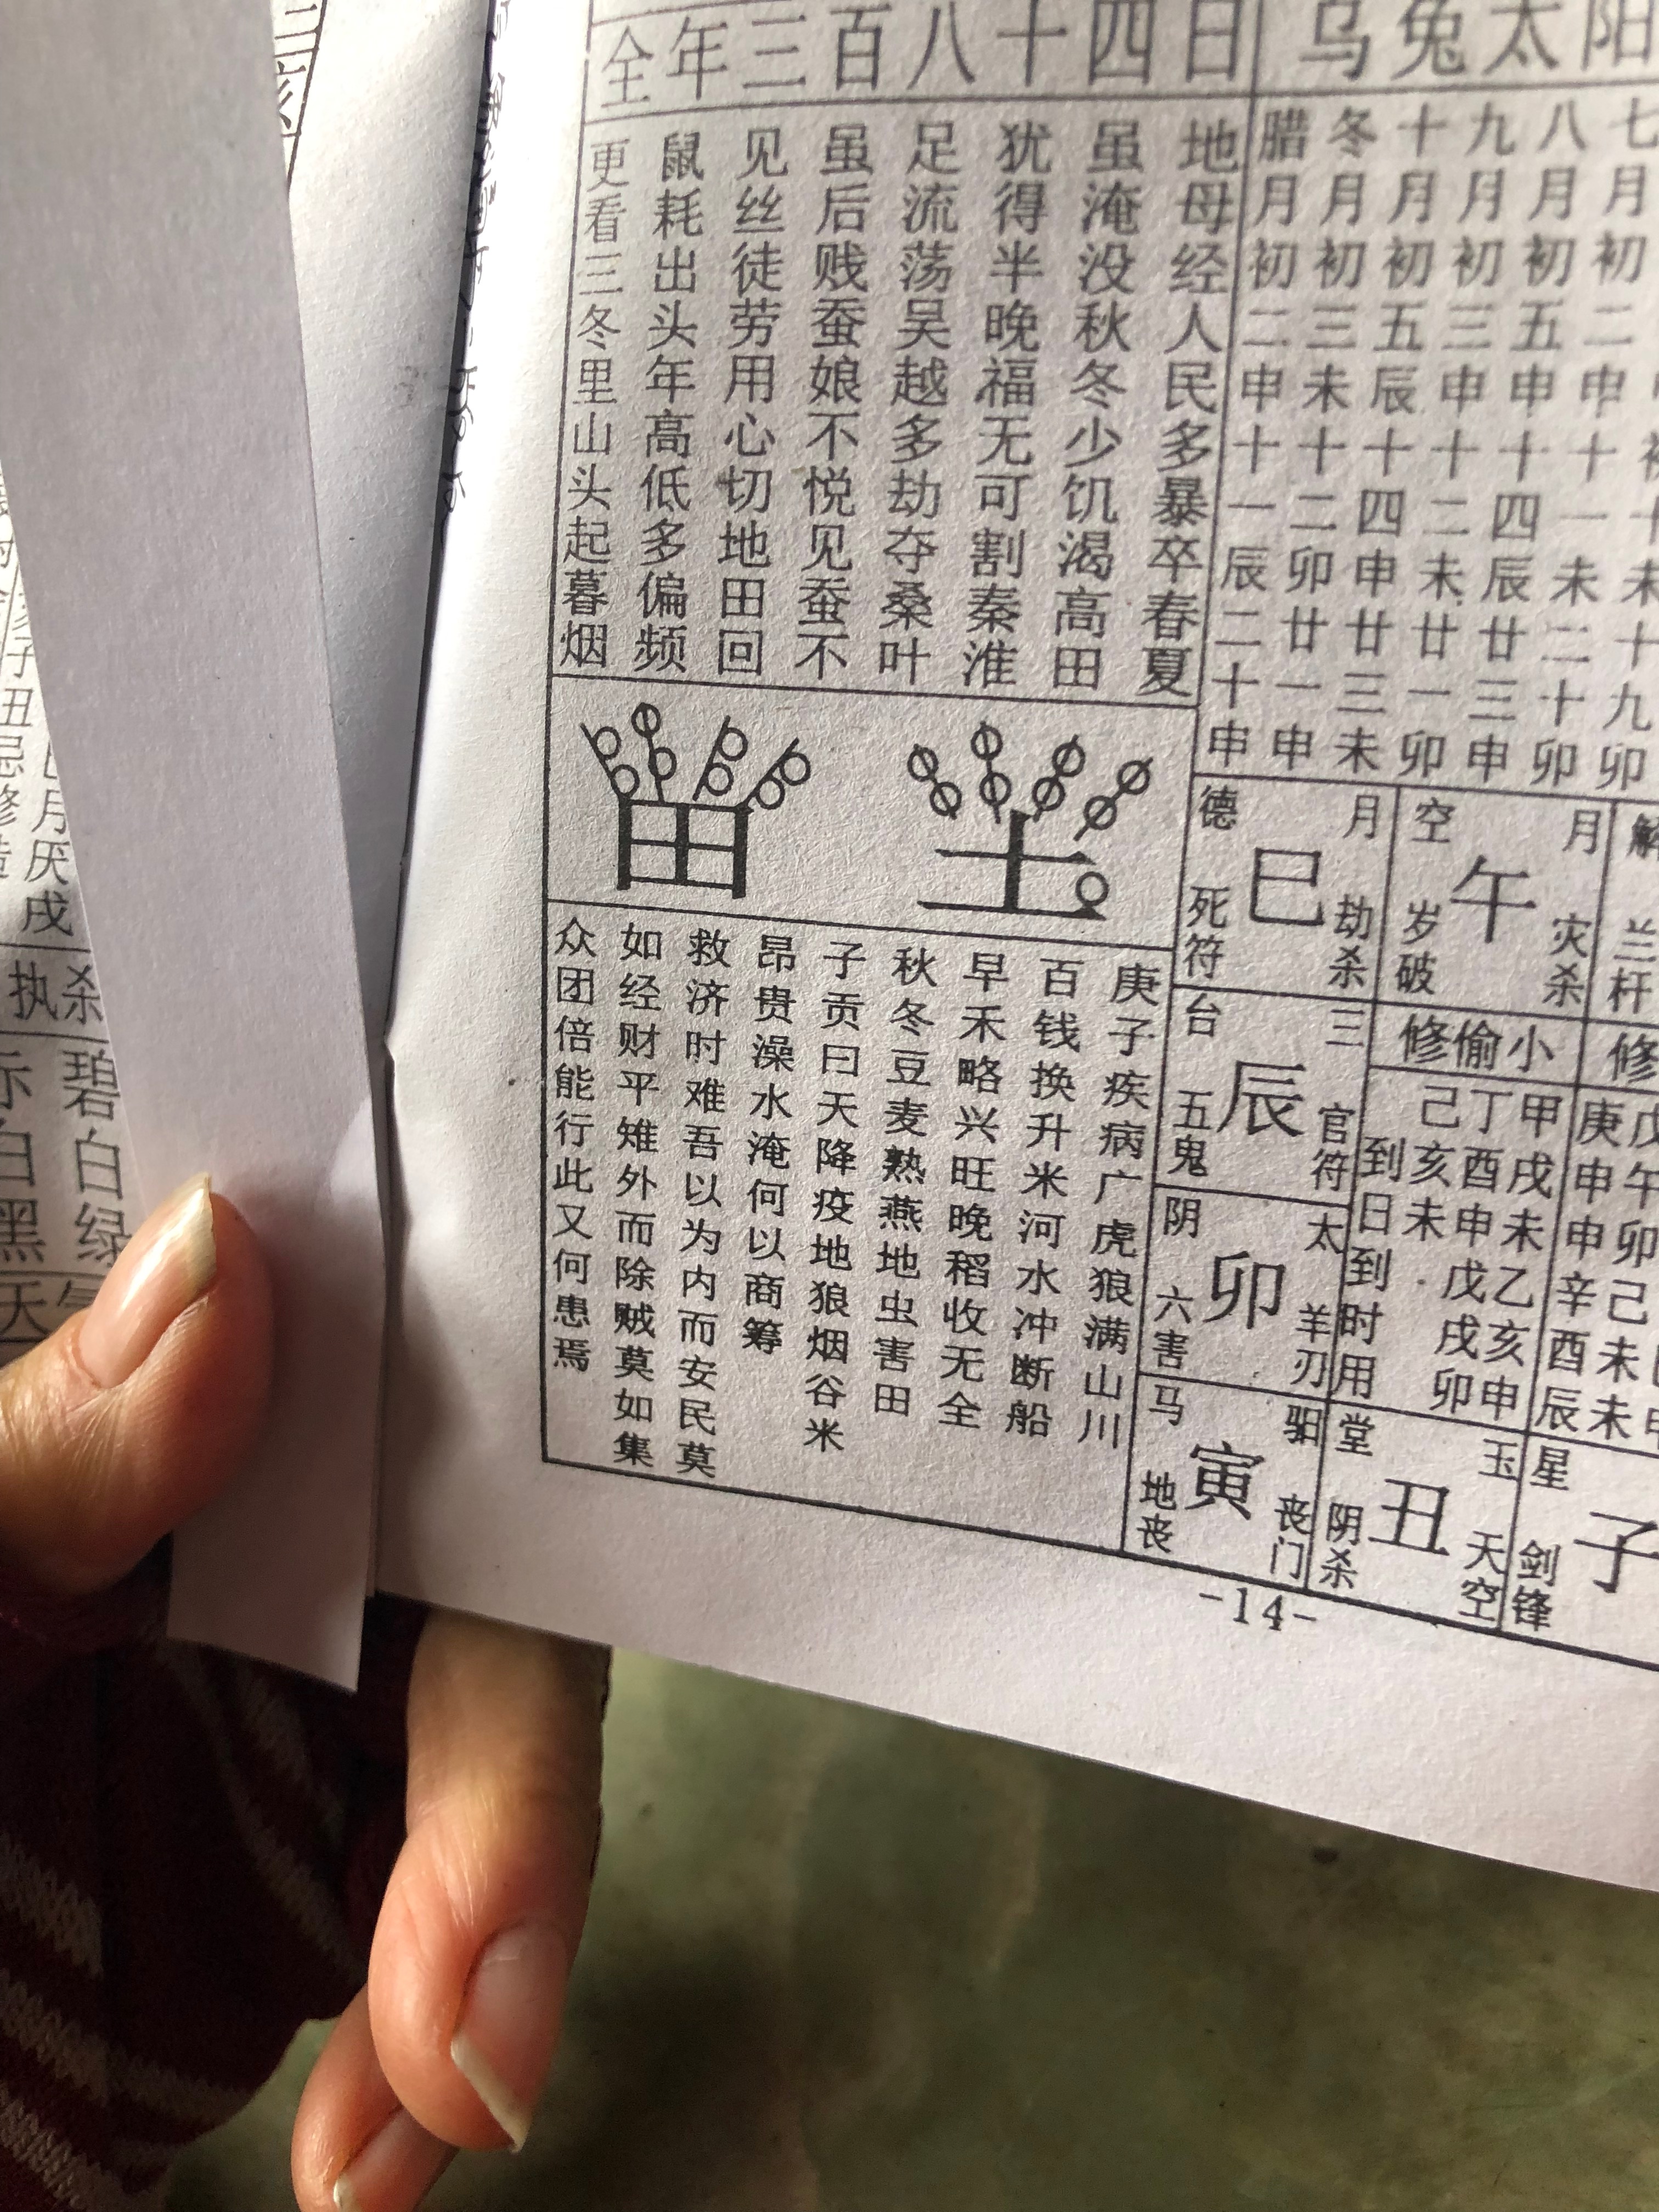 全年三百八十四日
乌兔太阳
七月初二申十一未二十卯
八月初五申十四辰廿三申
九月初三申十二未廿一卯
十月初五辰十四申廿三未
冬月初三未十二卯廿一申
腊月初二申十一辰二十申
地母经人民多暴卒春夏
虽淹没秋冬少饥渴高田
犹得半晚福无可割秦淮
足流荡吴越多劫夺桑叶
虽后贱蚕娘不悦见蚕不
见丝徒劳用心切地田回
鼠耗出头年高低多偏频
更看三冬里山头起暮烟
土
田
庚子疾病广虎狼满山川
百钱换升米河水冲断船
早禾略兴旺晚稻收无全
秋冬豆麦熟燕地虫害田
子贡曰天降疫地狼烟谷米
昂贵澡水淹何以商筹
救济时难吾以为内而安民莫
如经财平雉外而除贼莫如集
众团倍能行此又何患焉
解
兰杆
修
月空
午
灾杀
岁破
小偷修
月德
巳
劫杀
死符
三台
辰
官符
五鬼
太阴
卯
羊刃
六害
驲马
寅
丧门
地丧
庚申申
辛酉辰
甲戌未
乙亥申
丁酉申
戊戌卯
己亥未
到日到时用
玉堂
丑
天空
阴杀
星
子
剑锋
-14-
月厌戌
杀
执
碧白绿
白黑
天